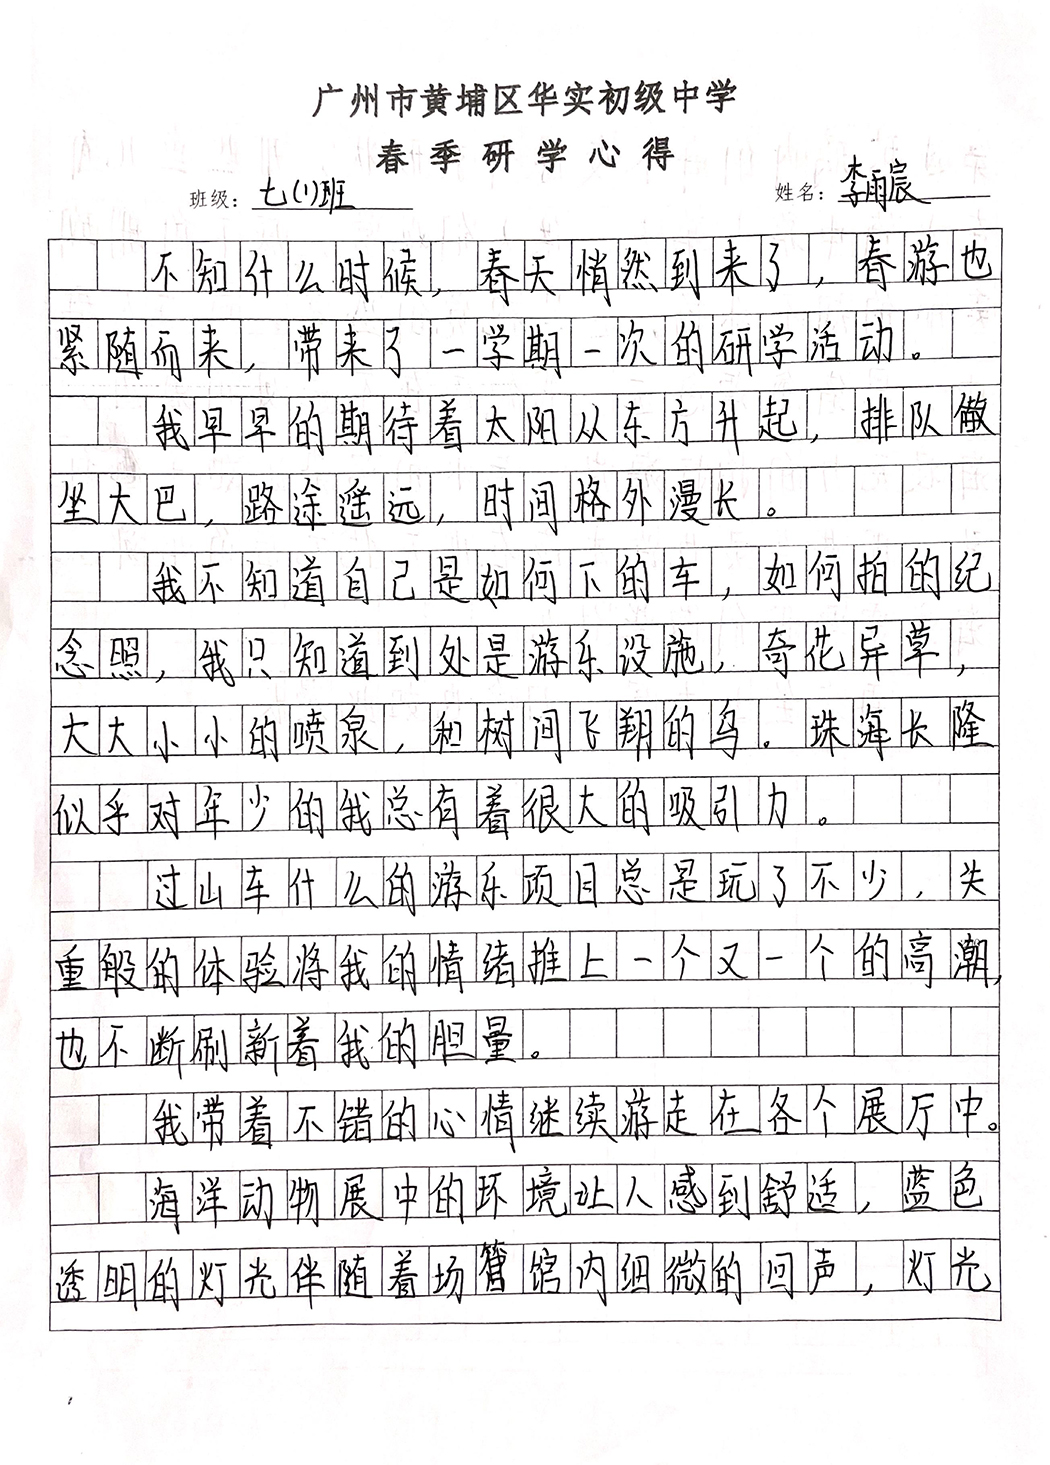 广州市黄埔区华实初级中学
春季研学心得
班级：七(1)班 姓名：李雨宸
不知什么时候，春天悄然到来了，春游也
紧随而来，带来了一学期一次的研学活动。
我早早的期待着太阳从东方升起，排队做
坐大巴，路途遥远，时间格外漫长。
我不知道自己是如何下的车，如何拍的纪
念照，我只知道到处是游乐设施，奇花异草，
大大小小的喷泉，和树间飞翔的鸟。珠海长隆
似乎对年少的我总有着很大的吸引力。
过山车什么的游乐项目总是玩了不少，失
重般的体验将我的情绪推上一个又一个的高潮，
也不断刷新着我的胆量。
我带着不错的心情继续游走在各个展厅中。
海洋动物展中的环境让人感到舒适，蓝色
透明的灯光伴随着场馆内细微的回声，灯光